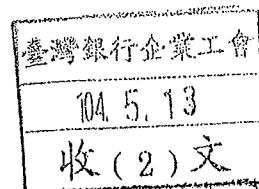 臺灣銀行企業工會
104. 5. 13
收(2)文